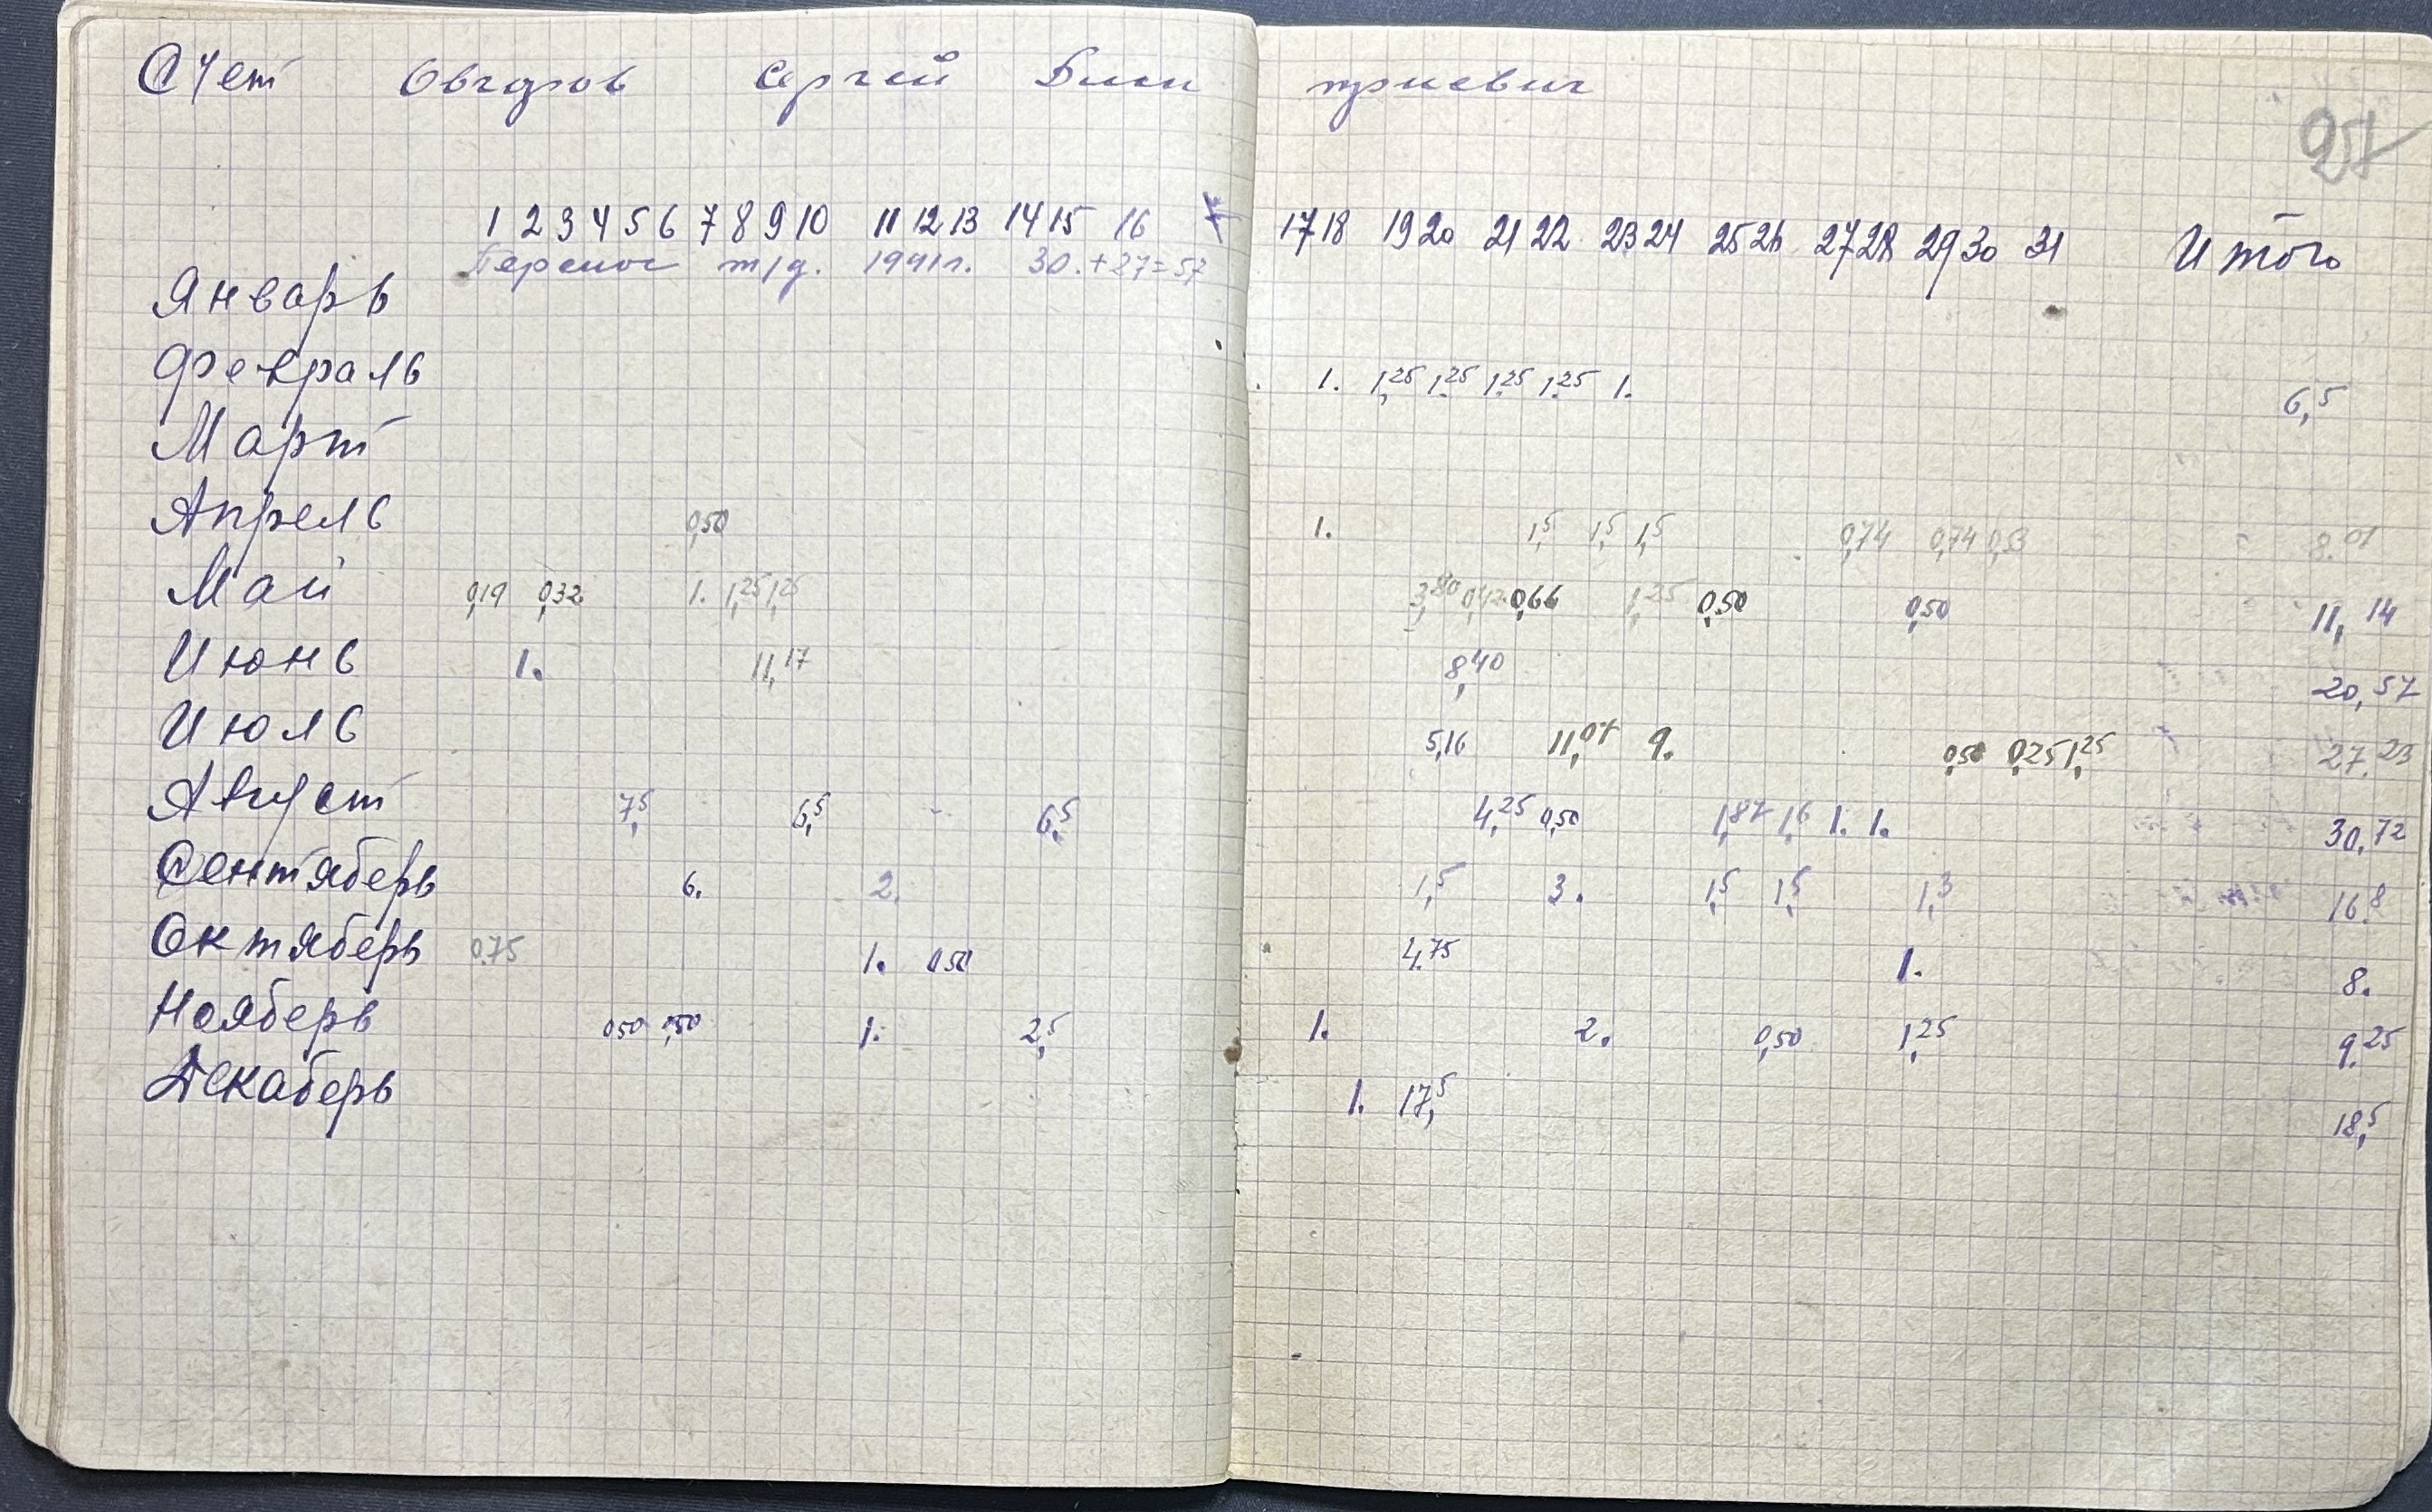 Счет Сергей
25
1 2 3 4 5 6 7 8 9 10 11 12 13 14 15 16 17 18 19 20 21 22 23 24 25 26 27 28 29 30 31 Итого
Перенос т/д. 1941г. 30.+27=57
Январь
Февраль 1. 1,25 1,25 1,25 1,25 1. 6,5
Март
Апрель 0,50 1. 1,5 1,5 1,5 0,74 0,74 0,53 8.01
Май 0,19 0,32 1. 1,25 1,25 3,80 0,42 0,66 1,25 0,50 0,50 11,14
Июнь 1. 11,17 8,40 20,57
Июль 5,16 11,07 9. 0,50 0,25 1,25 27.23
Август 7,5 6,5 6,5 4,25 0,50 1,87 1,6 1. 1. 30,72
Сентяберь 6. 2. 1,5 3. 1,5 1,5 1,3 16.8
Октяберь 0.75 1. 0,50 4.75 1. 8.
Нояберь 0,50 0,50 1. 2,5 1. 2. 0,50 1,25 9.25
Декаберь 1. 17,5 18,5